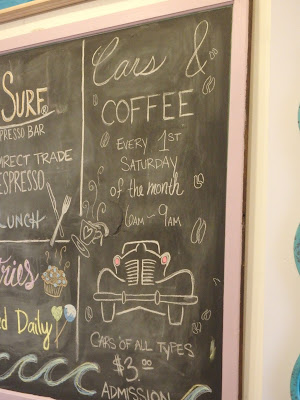 SURF
PRESSO BAR
DIRECT TRADE
ESPRESSO
LUNCH
tries
ed Daily
Cars &
COFFEE
EVERY 1ST
SATURDAY
of the month
6AM ~ 9AM
CARS OF ALL TYPES
$3.00
ADMISSION